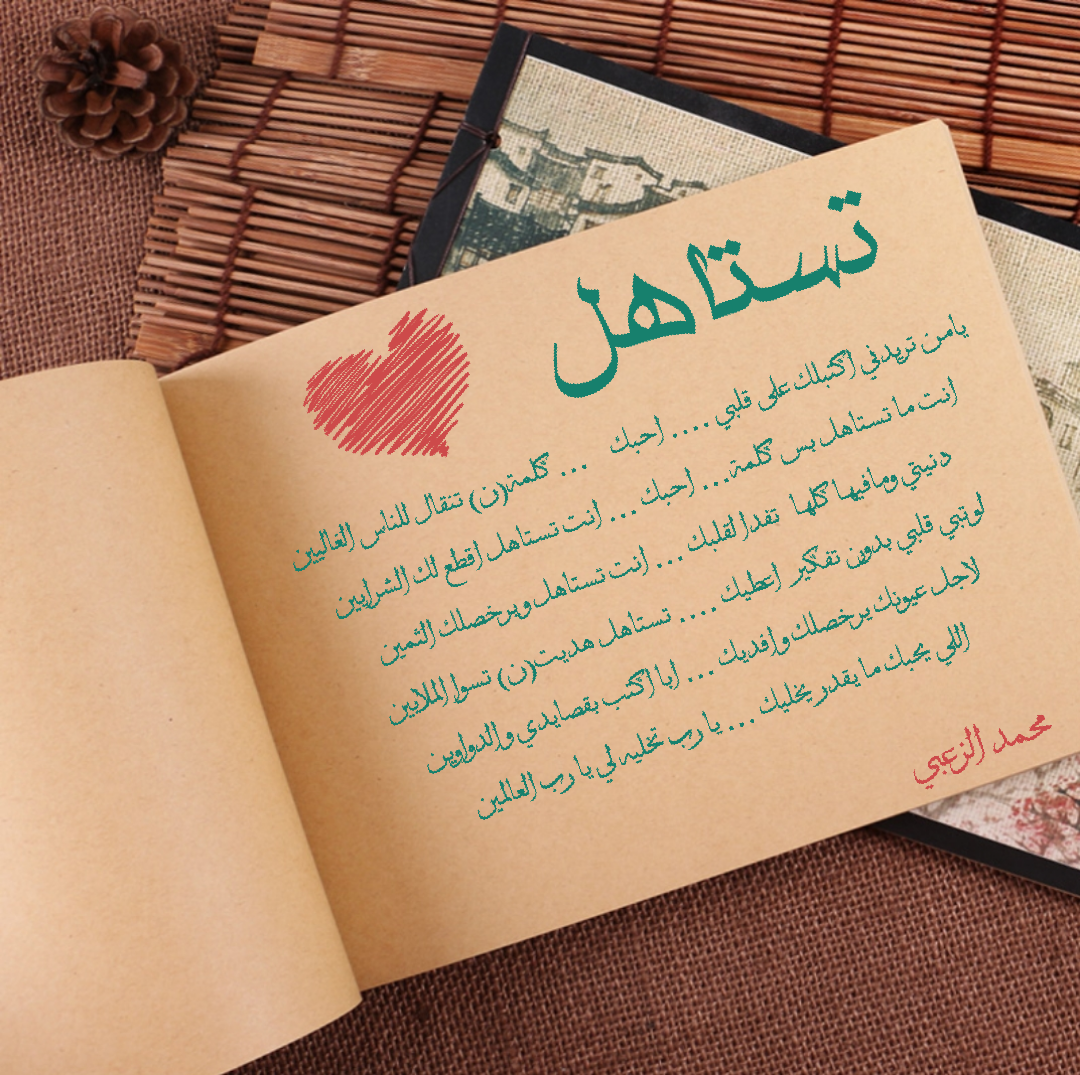 تستاهل
يامن تريدني اكتبلك على قلبي .... احبك ... كلمة(ن) تنقال للناس الغاليين
انت ما تستاهل بس كلمة... احبك ... انت تستاهل اقطع لك الشرايين
دنيتي ومافيها كلها تفدا لقلبك ... انت تستاهل ويرخصلك الثمين
لو تبي قلبي بدون تفكير اعطيك .... تستاهل هديت(ن) تسوا الملايين
لاجل عيونك يرخصلك وافديك ... ابا اكتب بقصايدي والدواوين
اللي يحبك ما يقدر يخليك ... يا رب تخليه لي يا رب العالمين
محمد الزعبي